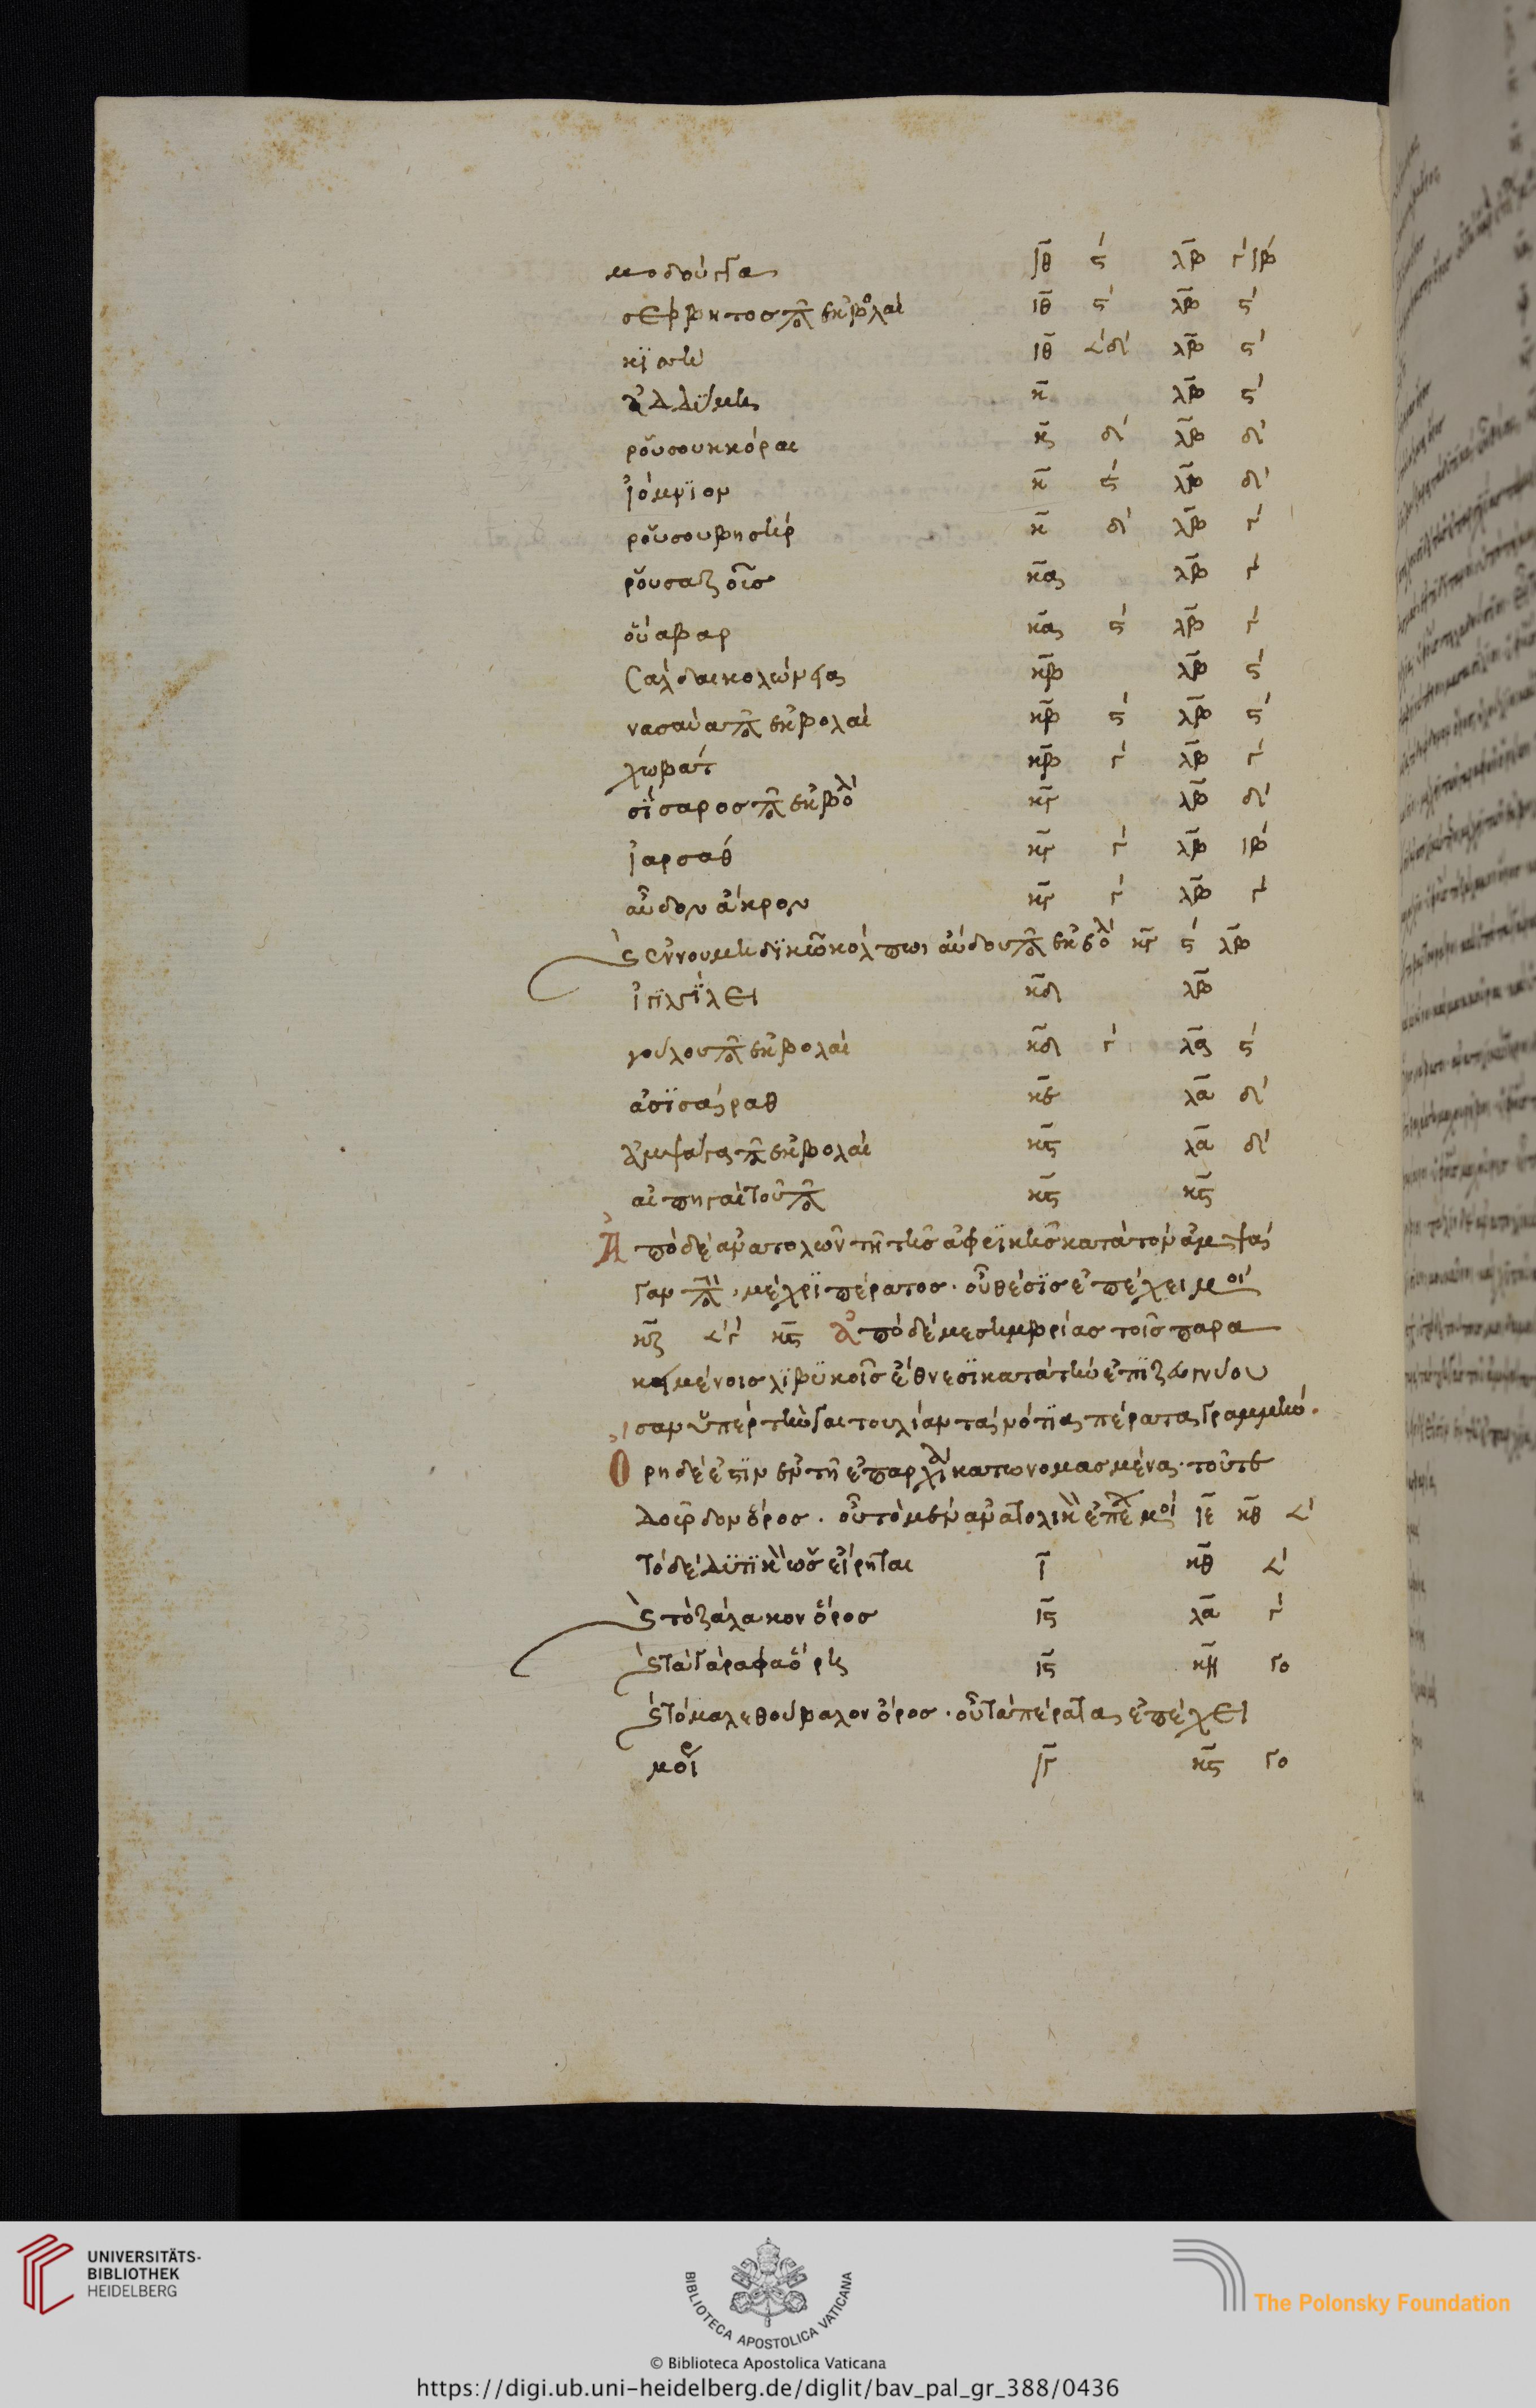 μοδούγγα ιθ ϛ λβ γιβ
σέρβητος ποτ ἐκβολαί ιθ ϛ λβ ϛ
κϊσσὴ ιθ 𐅵δ λβ ϛ
ἀδδϋμη κ λβ ϛ
ῥουσουκκόραι κ δ λβ δ
ἰόμνϊον κ ϛ λβ δ
ῥουσουβησήρ κ δ λβ γ
ῥουσαζοῦσ κα λβ γ
οὐαβαρ κα ϛ λβ γ
σαλδαι κολώνια κβ λβ ϛ
νασαύα ποτ ἐκβολαί κβ ϛ λβ ϛ
χωβάτ κβ γ λβ γ
σϊσαρος ποτ ἐκβολ κγ λβ δ
ἰαρσαθ κγ γ λβ ιβ
αὖδον ἄκρον κγ γ λβ γ
κὶ ἐν νουμηδϊκῶ κόλπωι αὐδου ποτ ἐκβολ κγ ϛ λβ
ἰγϊλγϊλει κδ λβ
γούλου ποτ ἐκβολαί κδ γ λα ϛ
ἀσϊσάραθ κε λα δ
ἀμψάγα ποτ ἐκβολαί κϛ λα δ
αἱ πηγαὶ τοῦ ποτ κϛ κϛ
Ἀπὸ δὲ ἀνατολῶν τῆ τῆς ἀφρικῆς κατὰ τὸν ἀμψά
γαν ποτ μέχρϊ πέρατος · οὗ θέσϊς ἐπέχει μοί
κζ 𐅵γ κϛ ἀπὸ δὲ μεσημβρίας τοῖς παρα
κειμένοις λϊβϋκοῖς ἔθνεσϊ κατὰ τὴν ἐπϊζωγνύου
σαν ὑπὲρ τὴν γαιτουλίαν τὰ νότϊα πέρατα γραμμήν.
Ὄρη δέ ἐστϊν ἐν τῆ ἐπαρχί κατωνομασμένα · τοῦτε
δοῦρδον ὄρος · οὗ τὸ μὲν ἀνατολικὸν ἐπέχ μοί ιε κθ 𐅵
τὸ δὲ δϋτϊκὸν ὡς εἴρηται ι κθ 𐅵
κὶ τὸ ζάλακον ὄρος ιϛ λα γ
κὶ τὰ γάραφα ὄρη ιϛ κη γο
κὶ τὸ μαλεθούβαλον ὄρος · οὗ τὰ πέρατα ἐπέχει
μοί ιγ κϛ γο
UNIVERSITÄTS-
BIBLIOTHEK
HEIDELBERG
BIBLIOTECA APOSTOLICA VATICANA
The Polonsky Foundation
© Biblioteca Apostolica Vaticana
https://digi.ub.uni-heidelberg.de/diglit/bav_pal_gr_388/0436